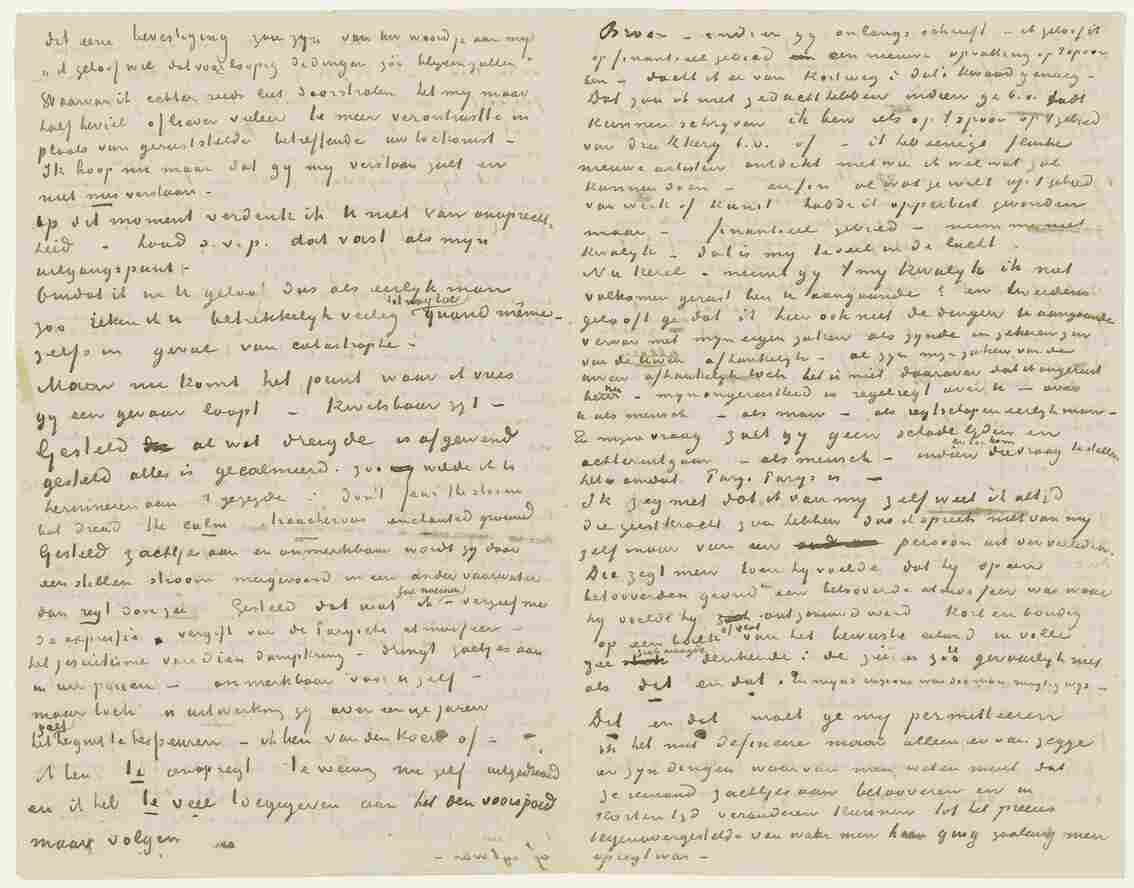 dat eene bevestiging zou zyn van uw woordje aan my
„ik geloof wel dat voorloopig de dingen zóó blyven zullen"
Waarvan ik echter reeds liet doorstralen het my maar
half beviel of liever veleer te meer verontrustte in
plaats van geruststelde betreffende uw toekomst –
Ik hoop nu maar dat gy my verstaan zult en
niet misverstaan –
op dit moment verdenk ik U niet van onoprecht
heid – houd s.v.p. dat vast als myn
uitgangspunt –
Omdat ik nu U geloof dus als eerlyk man
zoo reken ik U betrekkelyk veilig quand même –
zelfs in geval van catastrophe –
Maar nu komt het punt waar ik vrees
gy een gevaar loopt – Kwetsbaar zyt –
Gesteld al wat dreigde is afgewend
gesteld alles is gecalmeerd. zoo wilde ik U
herinneren aan 't gezegde: Don't fear the storm
but dread the calm treacherous enchanted ground
Gesteld zachtjes aan en onmerkbaar wordt gy door
een stillen stroom meegevoerd in een ander vaarwater
dan regt door zee. Gesteld dat wat ik – vergeef me
de expressie vergift van de Parysche atmosfeer –
het jesuitisme van dien dampkring – dringt zachtjes aan
in uw poriën – onmerkbaar voor U zelf –
maar toch de uitwerking gy over eenige jaren
zelf het begint te bespeuren – ik ben van den koers of –
ik ben te onopregt te weinig me zelf uitgedrukt
en ik heb te veel toegegeven aan het den voorspoed
maar volgen
Broer – indien gy onlangs schreeft – ik geloof ik
op financieel gebied een nieuwe opvatting op 't spoor
ben – dacht ik er van Kortweg: dat's kwaad genoeg –
Dat zou ik niet gedacht hebben indien ge b.v. hadt
kunnen schryven ik ben iets op 't spoor op 't gebied
van drukkery b.v. of – ik heb eenige flinke
nieuwe artisten ontdekt met wie ik wel wat zal
kunnen doen – enfin al wat je wilt op 't gebied
van werk of kunst hadde ik opperbest gevonden
maar – financieel gebied – neem me niet
kwalyk – dat is my te veel in de lucht.
Nu Kerel – neemt gy 't my kwalyk ik niet
volkomen gerust ben U aangaande? en tweedens
gelooft ge dat ik hier ook niet de dingen U aangaande
verwar met myn eigen zaken als zynde in geheven zin
van de Uwen afhankelyk – al zyn myn zaken van de
uwen afhankelyk toch het is niet daarover dat ik ongerust
ben – myn ongerustheid is regelregt over U – over
U als mensch – als man – als regtschapen eerlyk man –
En myne vraag zult gy geen schade lyden en
achteruitgaan – als mensch – indien ik er toe kom die vraag te stellen
het is omdat Parys Parys is –
Ik zeg niet dat ik van my zelf weet ik altyd
die geestkracht zou hebben dus ik spreek niet van my
zelf maar van een persoon uit vervlogen.
Die zegt men toen hy voelde dat hy op een
betooverden grond in een betooverde atmosfeer was waar
hy voelde hy ontzenuwd werd kort en bondig
op een boot of vlot van het bewuste eiland in volle
zee stak denkende: de zee is zóó gevaarlyk niet
als dit en dat. En in myne visioen was die man nuchter wys –
Dit en dat moet ge my permitteeren
ik het niet definiere maar alleen er van zegge
er zyn dingen waarvan men weten moet dat
ze iemand zachtjes aan betooveren en in
korten tyd veranderen kunnen tot het precies
tegenovergestelde van wat men ging zoolang men
opregt was –